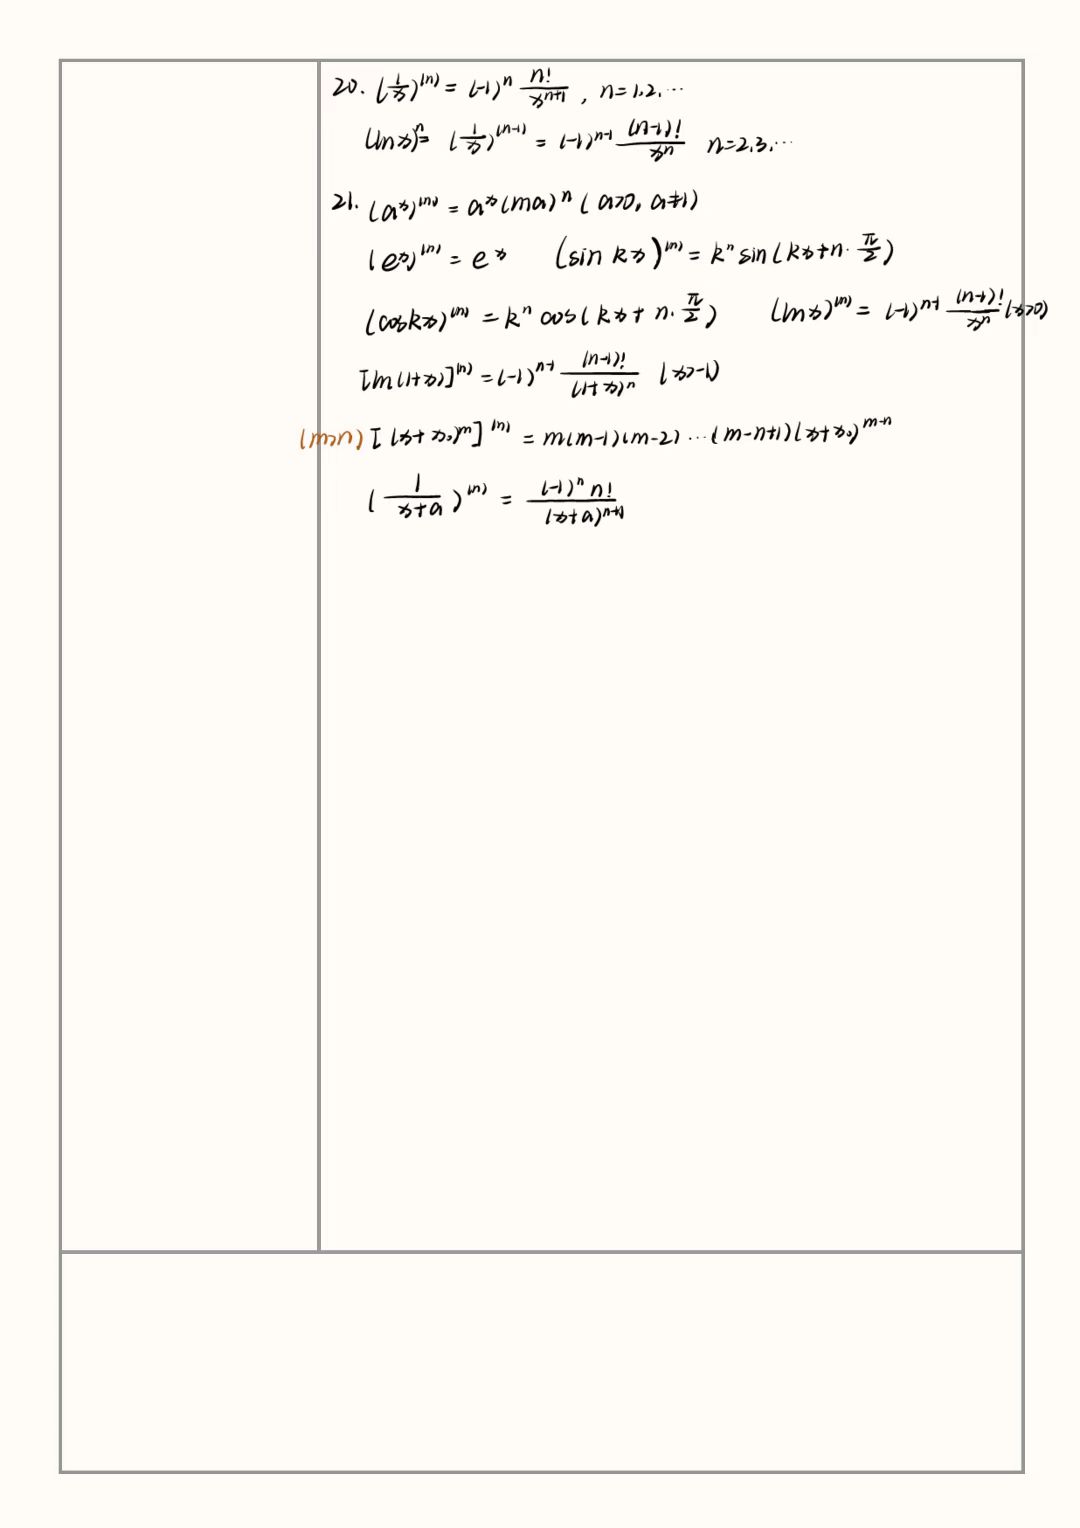 20. (1/x)^(n) = (-1)^n n!/x^(n+1) , n=1.2.…
(ln x)^n = (1/x)^(n-1) = (-1)^(n-1) (n-1)!/x^n n=2.3.…
21. (a^x)^(n) = a^x (ln a)^n (a>0, a≠1)
(e^x)^(n) = e^x (sin kx)^(n) = k^n sin(kx+n·π/2)
(cos kx)^(n) = k^n cos(kx+n·π/2) (ln x)^(n) = (-1)^(n-1) (n-1)!/x^n (x>0)
[ln(1+x)]^(n) = (-1)^(n-1) (n-1)!/(1+x)^n (x>-1)
(m>n) [(x+x₀)^m]^(n) = m(m-1)(m-2)…(m-n+1)(x+x₀)^(m-n)
(1/(x+a))^(n) = (-1)^n n!/(x+a)^(n+1)